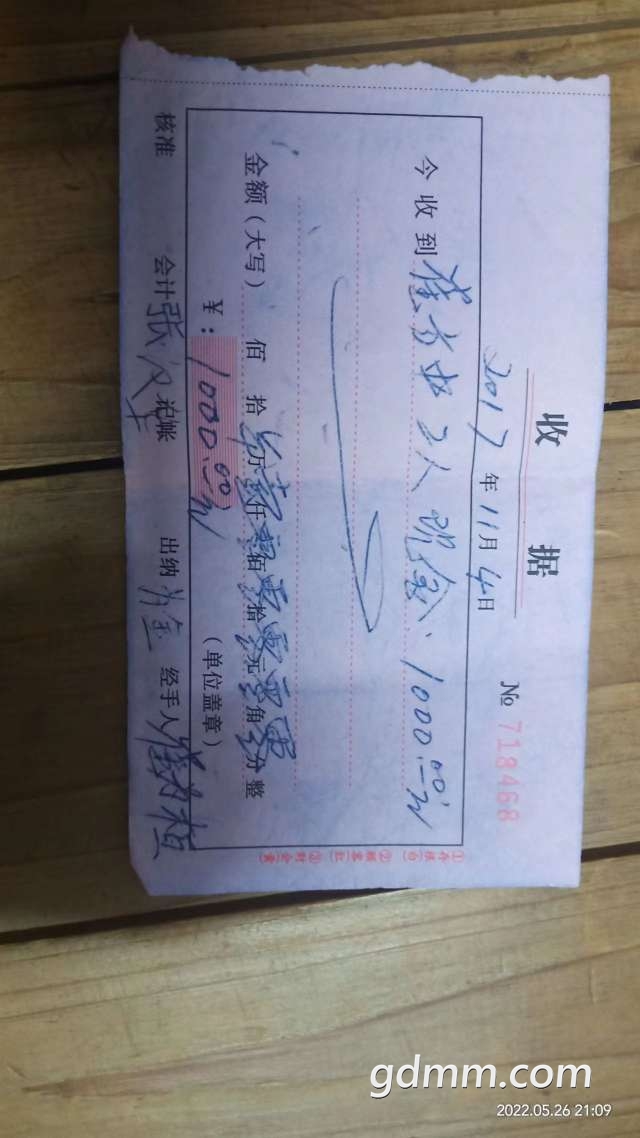 收 据
2017 年 11 月 4 日
№ 718468
今收到 2人现金 1000.00元
金额(大写) 佰 拾 万 壹 仟 零 佰 零 拾 零 元 零 角 零 分 整
¥:1000.00元
(单位盖章)
核准 会计 张 记帐 出纳 经手人
①存根(白) ②顾客(红) ③财会(黄)
gdmm.com
2022.05.26 21:09